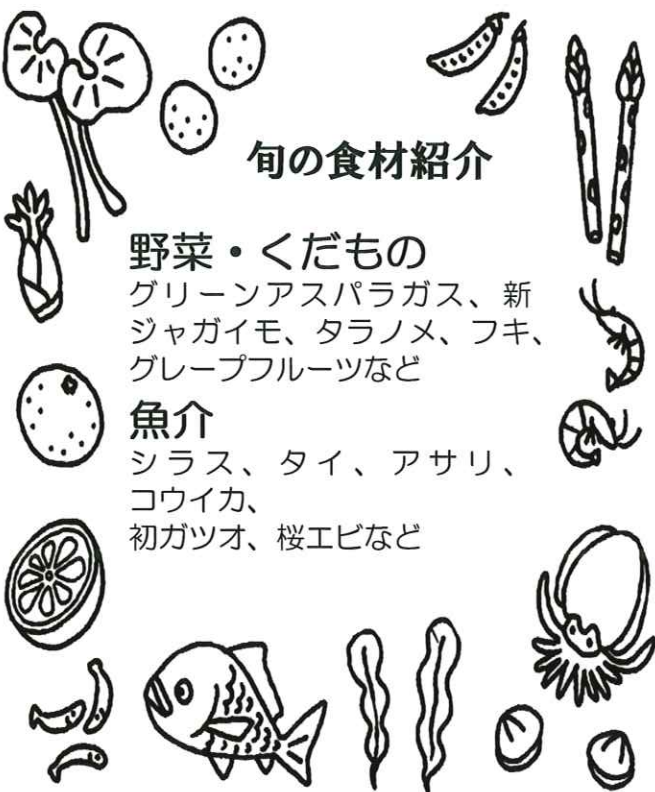 旬の食材紹介
野菜・くだもの
グリーンアスパラガス、新
ジャガイモ、タラノメ、フキ、
グレープフルーツなど
魚介
シラス、タイ、アサリ、
コウイカ、
初ガツオ、桜エビなど